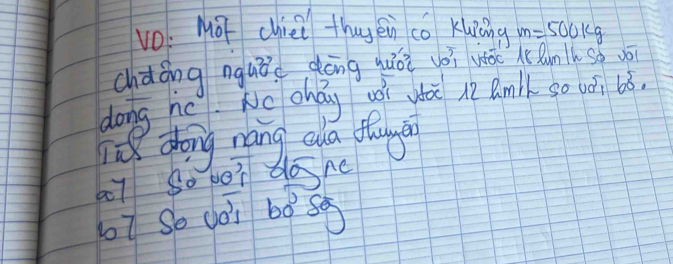 VD: Một chiếc thuyền có khlượng m=500kg
chđộng ngược dòng nước với vtốc 18 km/h so với
dòng nc. Nc chảy với vtốc 12 km/h so với bờ.
Tính động năng của thuyền
a) So với dg nc
b) So với bờ sg